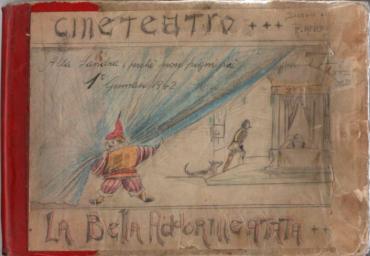 CINETEATRO +++
Alla Sandra, perchè non
1° Gennaio 1962
LA BELLA ADDORMENTATA ++